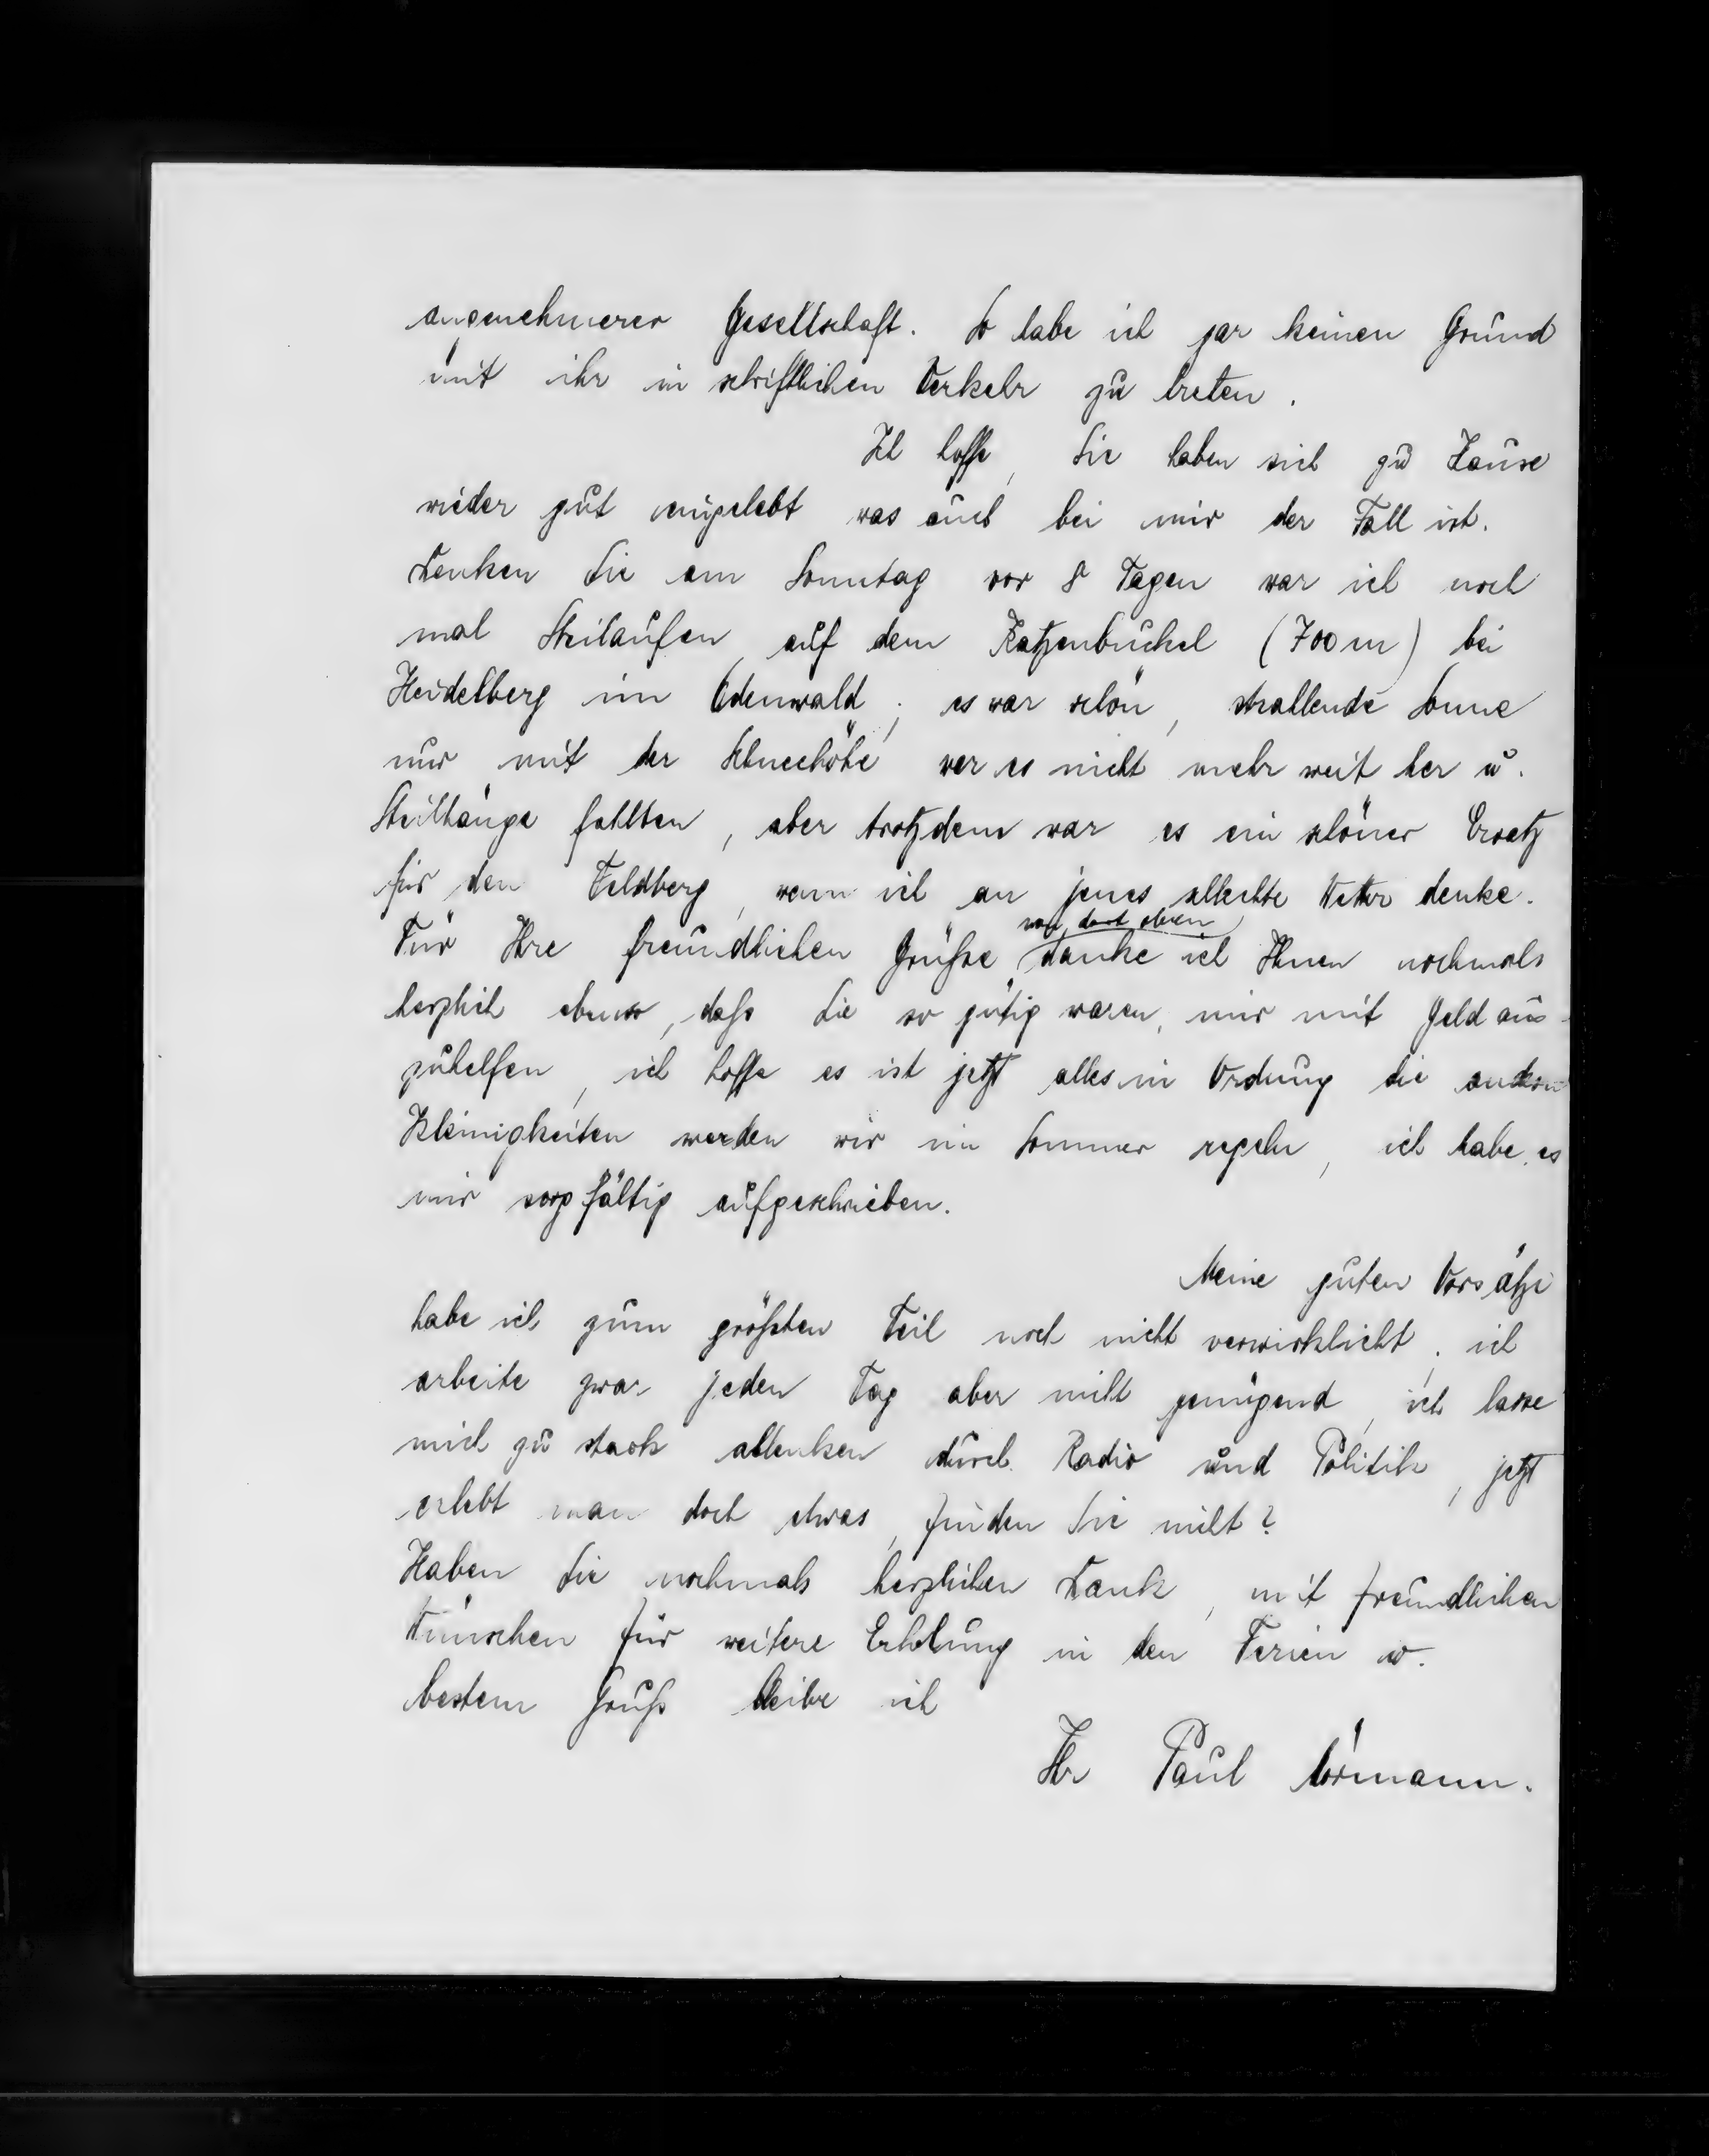 angenehmerer Gesellschaft. So habe ich gar keinen Grund
mit ihr in schriftlichen Verkehr zu treten.
Ich hoffe, Sie haben sich zu Hause
wieder gut eingelebt was auch bei mir der Fall ist.
Denken Sie am Sonntag vor 8 Tagen war ich noch
mal Skilaufen auf dem Katzenbuckel (700 m) bei
Heidelberg im Odenwald; es war schön, strahlende Sonne
nur mit der Schneehöhe war es nicht mehr weit her u.
Steilhänge fehlten, aber trotzdem war es ein schöner Ersatz
für den Feldberg, wenn ich an jenes schlechte Wetter denke.
von dort oben
Für Ihre freundlichen Grüße danke ich Ihnen nochmals
herzlich ebenso, daß Sie so gütig waren, mir mit Geld aus-
zuhelfen, ich hoffe es ist jetzt alles in Ordnung die andern
Kleinigkeiten werden wir im Sommer regeln, ich habe es
mir sorgfältig aufgeschrieben.
Meine guten Vorsätze
habe ich zum größten Teil noch nicht verwirklicht, ich
arbeite zwar jeden Tag aber nicht genügend, ich lasse
mich zu stark ablenken durch Radio und Politik, jetzt
erlebt man doch etwas, finden Sie nicht?
Haben Sie nochmals herzlichen Dank, mit freundlichen
Wünschen für weitere Erholung in den Ferien u.
bestem Gruß bleibe ich
Ihr Paul